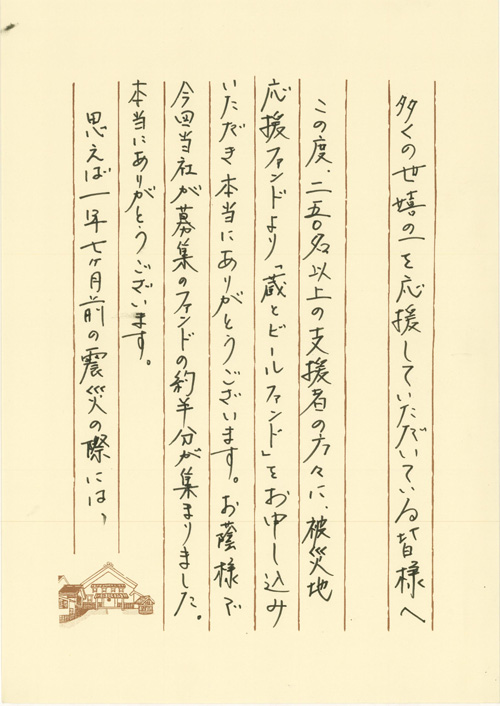 多くの世嬉の一を応援していただいている皆様へ
この度、二五〇名以上の支援者の方々に、被災地
応援ファンドより「蔵とビールファンド」をお申し込み
いただき本当にありがとうございます。お蔭様で
今回当社が募集のファンドの約半分が集まりました。
本当にありがとうございます。
思えば一年七ヶ月前の震災の際には、